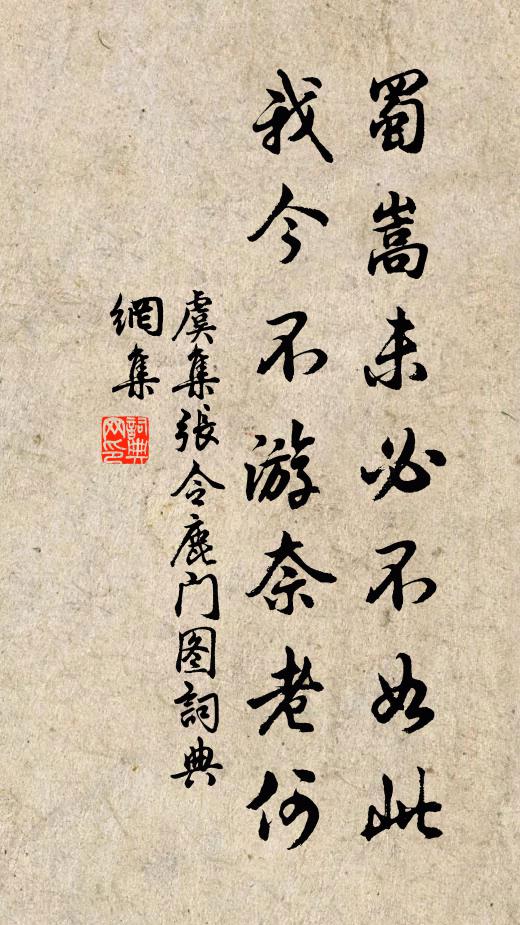 蜀嵩未必不如此
我今不游奈老何
虞集張令鹿门图詞典
網集
詞典
网印